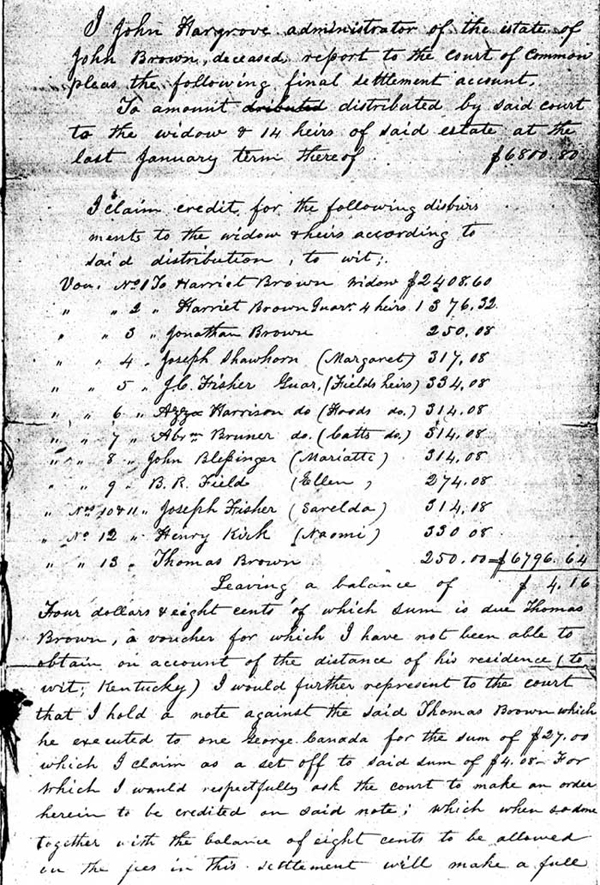 I John Hargrove administrator of the estate of
John Brown, deceased, report to the court of Common
pleas the following final settlement account.
To amount dributed distributed by said court
to the widow & 14 heirs of said estate at the
last January term thereof $6800.80
I claim credit for the following disburs
ments to the widow & heirs according to
said distribution, to wit;
Vou. No 1 To Harriet Brown widow $2408.60
" " 2 " Harriet Brown Guar. 4 heirs 1376.32
" " 3 " Jonathan Brown 250.08
" " 4 " Joseph Shawhorn (Margaret) 317.08
" " 5 " J.C. Fisher Guar. (Fields heirs) 334.08
" " 6 " Azza Harrison do (Hoods do.) 314.08
" " 7 " Abrm Bruner do. (Catts do.) 314.08
" " 8 " John Blessinger (Mariatte) 314.08
" " 9 " B. R. Field (Ellen) 274.08
" Nos 10 & 11 " Joseph Fisher (Sarelda) 314.08
" No 12 " Henry Kirk (Naomi) 330.08
" " 13 " Thomas Brown 250.00 = $6796.64
Leaving a balance of $4.16
Four dollars & eight cents of which sum is due Thomas
Brown, a voucher for which I have not been able to
obtain on account of the distance of his residence (to
wit; Kentucky) I would further represent to the court
that I hold a note against the said Thomas Brown which
he executed to one George Canada for the sum of $27.00
which I claim as a set off to said sum of $4.08 - For
which I would respectfully ask the court to make an order
herein to be credited on said note; which when so done
together with the balance of eight cents to be allowed
on the fees in this settlement will make a full